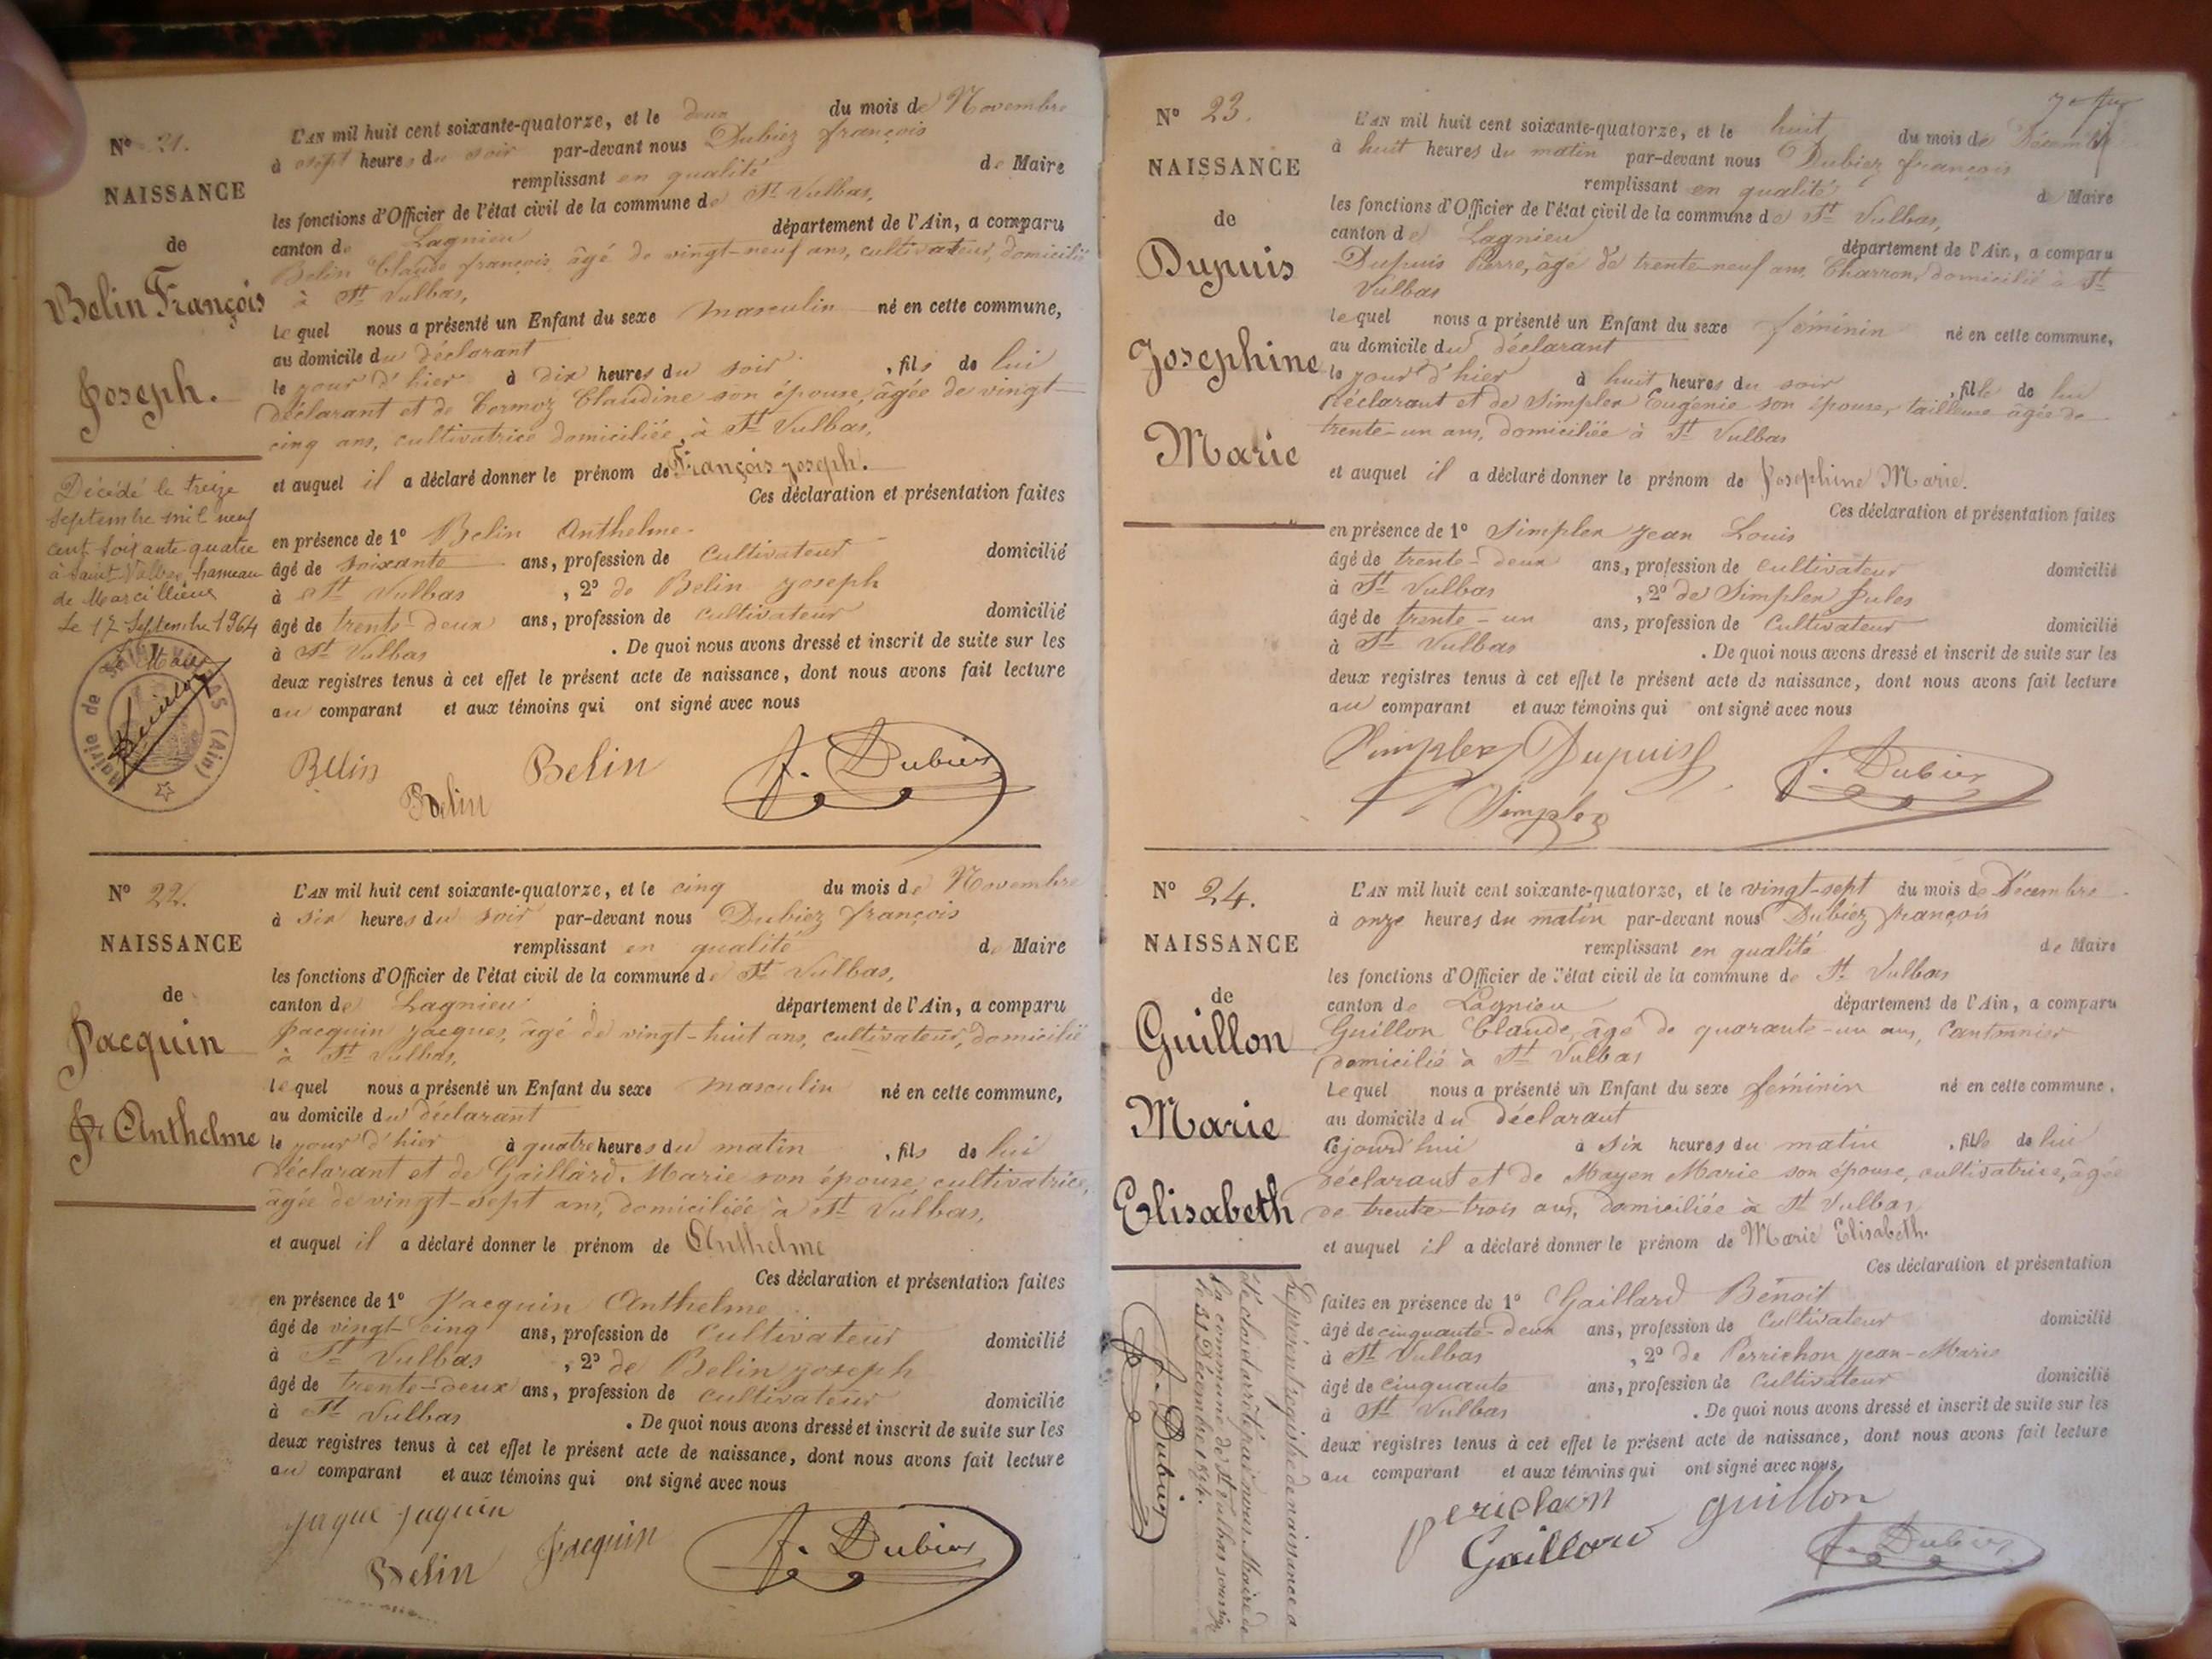 N° 21.
NAISSANCE
de
Belin François
Joseph.
Décédé le treize
septembre mil neuf
cent soixante quatre
à Saint Vulbas hameau
de Marcillieux
Le 17 Septembre 1964
Le Maire
Mairie de SAINT VULBAS (Ain)
L'AN mil huit cent soixante-quatorze, et le deux du mois de Novembre
à sept heures du soir par-devant nous Dubiez françois
remplissant en qualité de Maire
les fonctions d'Officier de l'état civil de la commune de St Vulbas,
canton de Lagnieu département de l'Ain, a comparu
Belin Claude françois, âgé de vingt-neuf ans, cultivateur, domicilié
à St Vulbas,
lequel nous a présenté un Enfant du sexe masculin né en cette commune,
au domicile du déclarant
le jour d'hier à dix heures du soir, fils de lui
déclarant et de Cormoz Claudine son épouse, âgée de vingt-
cinq ans, cultivatrice domiciliée à St Vulbas,
et auquel il a déclaré donner le prénom de François joseph.
Ces déclaration et présentation faites
en présence de 1° Belin Anthelme
âgé de soixante ans, profession de cultivateur domicilié
à St Vulbas, 2° de Belin joseph
âgé de trente-deux ans, profession de cultivateur domicilié
à St Vulbas. De quoi nous avons dressé et inscrit de suite sur les
deux registres tenus à cet effet le présent acte de naissance, dont nous avons fait lecture
au comparant et aux témoins qui ont signé avec nous
Belin Belin f. Dubiez
Belin
N° 22.
NAISSANCE
de
Jacquin
Anthelme
L'AN mil huit cent soixante-quatorze, et le cinq du mois de Novembre
à six heures du soir par-devant nous Dubiez françois
remplissant en qualité de Maire
les fonctions d'Officier de l'état civil de la commune de St Vulbas,
canton de Lagnieu département de l'Ain, a comparu
Jacquin jacques, âgé de vingt-huit ans, cultivateur, domicilié
à St Vulbas,
lequel nous a présenté un Enfant du sexe masculin né en cette commune,
au domicile du déclarant
le jour d'hier à quatre heures du matin, fils de lui
déclarant et de Gaillard Marie son épouse, cultivatrice,
âgée de vingt-sept ans, domiciliée à St Vulbas,
et auquel il a déclaré donner le prénom de Anthelme
Ces déclaration et présentation faites
en présence de 1° Jacquin Anthelme
âgé de vingt-cinq ans, profession de cultivateur domicilié
à St Vulbas, 2° de Belin joseph
âgé de trente-deux ans, profession de cultivateur domicilié
à St Vulbas. De quoi nous avons dressé et inscrit de suite sur les
deux registres tenus à cet effet le présent acte de naissance, dont nous avons fait lecture
au comparant et aux témoins qui ont signé avec nous
jaque jaquin
Belin Jacquin f. Dubiez
N° 23.
NAISSANCE
de
Dupuis
Josephine
Marie
L'AN mil huit cent soixante-quatorze, et le huit du mois de Décembre
à huit heures du matin par-devant nous Dubiez françois
remplissant en qualité de Maire
les fonctions d'Officier de l'état civil de la commune de St Vulbas,
canton de Lagnieu département de l'Ain, a comparu
Dupuis Pierre, âgé de trente-neuf ans Charron, domicilié à St
Vulbas
lequel nous a présenté un Enfant du sexe féminin né en cette commune,
au domicile du déclarant
le jour d'hier à huit heures du soir, fille de lui
déclarant et de Simplex Eugénie son épouse, tailleuse âgée de
trente-un ans, domiciliée à St Vulbas
et auquel il a déclaré donner le prénom de Josephine Marie.
Ces déclaration et présentation faites
en présence de 1° Simplex jean Louis
âgé de trente-deux ans, profession de cultivateur domicilié
à St Vulbas, 2° de Simplex Jules
âgé de trente-un ans, profession de Cultivateur domicilié
à St Vulbas. De quoi nous avons dressé et inscrit de suite sur les
deux registres tenus à cet effet le présent acte de naissance, dont nous avons fait lecture
au comparant et aux témoins qui ont signé avec nous
Simplex Dupuis f. Dubiez
Simplex
N° 24.
NAISSANCE
de
Guillon
Marie
Elisabeth
L'AN mil huit cent soixante-quatorze, et le vingt-sept du mois de Décembre
à onze heures du matin par-devant nous Dubiez françois
remplissant en qualité de Maire
les fonctions d'Officier de l'état civil de la commune de St Vulbas
canton de Lagnieu département de l'Ain, a comparu
Guillon Claude, âgé de quarante-un ans, Cantonnier
domicilié à St Vulbas
Lequel nous a présenté un Enfant du sexe féminin né en cette commune,
au domicile du déclarant
Cejourd'hui à six heures du matin, fille de lui
déclarant et de Mayen Marie son épouse, cultivatrice, âgée
de trente-trois ans, domiciliée à St Vulbas
et auquel il a déclaré donner le prénom de Marie Elisabeth.
Ces déclaration et présentation
faites en présence de 1° Gaillard Benoit
âgé de cinquante-deux ans, profession de Cultivateur domicilié
à St Vulbas, 2° de Perrichon jean-Marie
âgé de cinquante ans, profession de Cultivateur domicilié
à St Vulbas. De quoi nous avons dressé et inscrit de suite sur les
deux registres tenus à cet effet le présent acte de naissance, dont nous avons fait lecture
au comparant et aux témoins qui ont signé avec nous
perichon guillon
Gaillard f. Dubiez
Le présent registre de naissance a
été clos et arrêté par nous Maire de
la commune de St Vulbas soussigné
le 31 Décembre 1874.
f. Dubiez